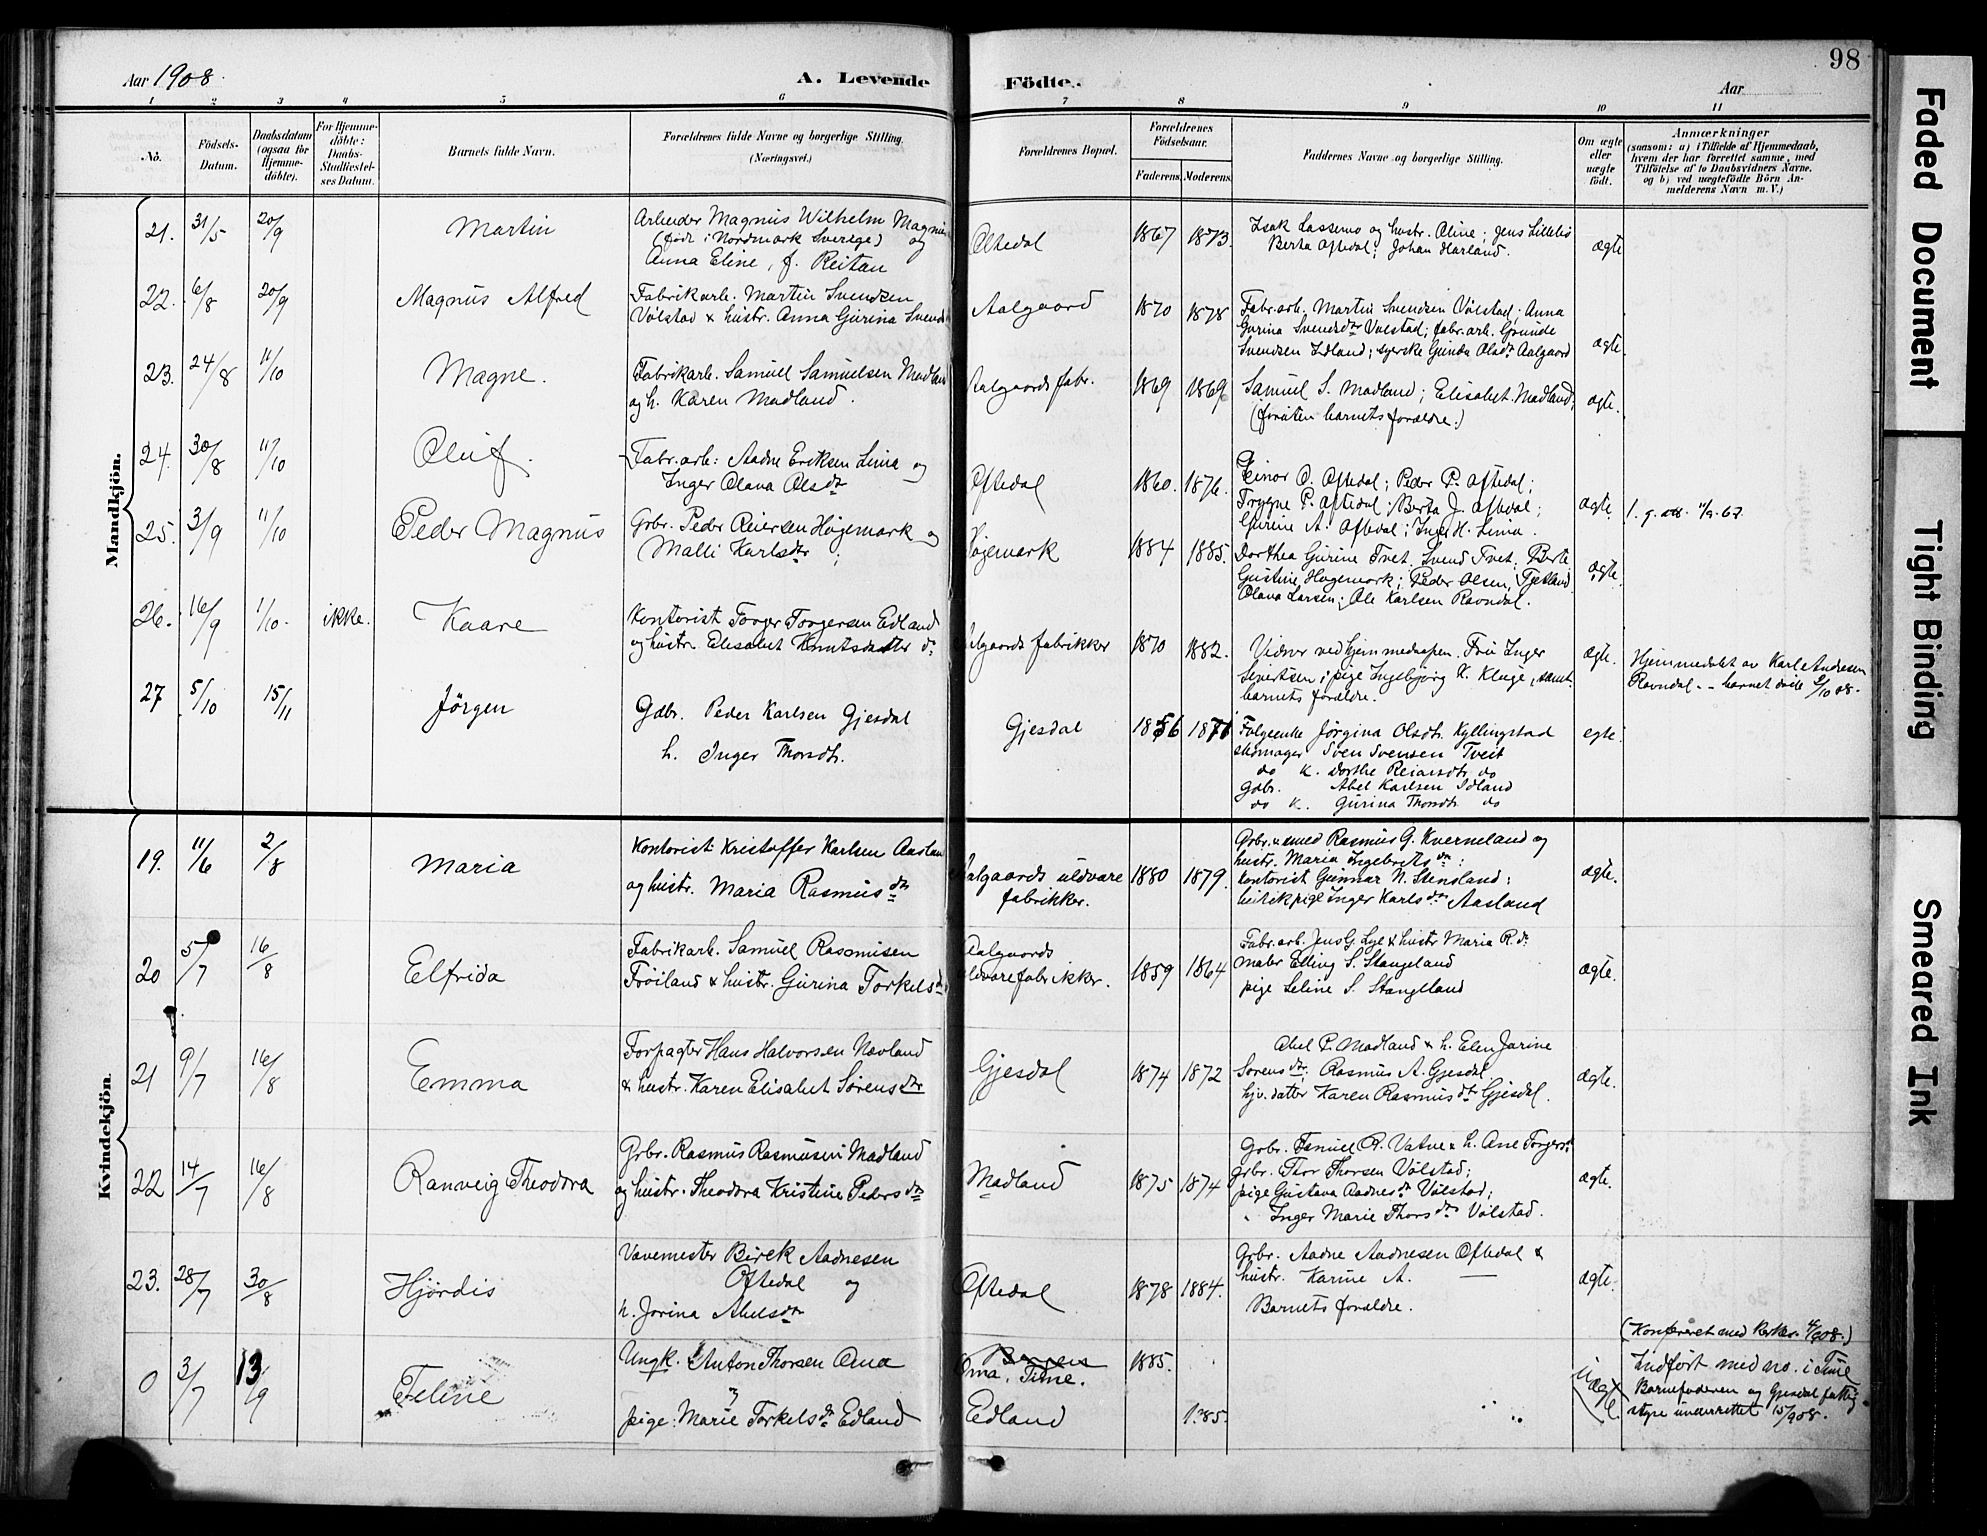 98
Aar 1908.
A. Levende Födte.
Aar
1 2 3 4 5 6 7 8 9 10 11
No.
Födsels-Datum.
Daabsdatum (ogsaa for Hjemme-döbte).
For Hjemme-döbte: Daabs-Stadfæstel-ses Datum.
Barnets fulde Navn.
Forældrenes fulde Navne og borgerlige Stilling.
(Næringsvei.)
Forældrenes Bopæl.
Forældrenes Födselsaar.
Faderens. Moderens.
Faddernes Navne og borgerlige Stilling.
Om ægte eller uægte födt.
Anmærkninger
(saasom: a) i Tilfælde af Hjemmedaab,
hvem der har forrettet samme, med
Tilföielse af to Daabsvidners Navne,
og b) ved uægtefödte Börn An-
melderens Navn m. V.)
Mandkjön.
21. 31/5 20/9 Martin
Arbeider Magnus Wilhelm Magnu
(født i Nordmark Sverige) og
Anna Eline, f. Reitan
Oltedal 1867 1873.
Isak Lassemo og hustr. Oline; Jens Lillebø
Berta Oftedal; Johan Harland.
ægte
22. 6/8 20/9 Magnus Alfred
Fabrikarb. Martin Svendsen
Vølstad & hustr. Anna Gurina Svends
Aalgaard 1870 1878
Fabr.arb. Martin Svendsen Vølstad; Anna
Gurina Svendsdtr Vølstad; fabr.arb. Gunde
Svendsen Edland; syerske Gunda Olsdtr Aalgaard
ægte.
23. 24/8 11/10 Magne.
Fabrikarb. Samuel Samuelsen Madland
og h. Karen Madland.
Aalgaards fabr. 1869 1869
Samuel S. Madland; Elisabet Madland;
(foruten barnets forældre.)
ægte.
24. 30/8 11/10 Oluf.
Fabr.arb: Aadne Eriksen Lima og
Inger Olava Olsdtr
Oftedal 1860. 1876.
Einor O. Oftedal; Peder P. Oftedal;
Trygve P. Oftedal; Berta J. Oftedal;
Gurine A. Oftedal; Inge H. Lima.
ægte.
25. 3/9 11/10 Peder Magnus
Grbr. Peder Reiersen Høgemark og
Malli Karlsdtr
Høgemark 1884 1885.
Dorthea Gurine Tvet, Svend Tvet; Berte
Gustine Høgemark; Peder Olsen Tjetland
Olava Larsen; Ole Karlsen Ravndal.
ægte.
26. 16/9 1/10. ikke. Kaare
Kontorist Torger Torgersen Edland
og hustr. Elisabet Knutsdatter do
Aalgaards fabrikker 1870 1882.
Vidner ved hjemmedaapen. Fru Inger
Sivertsen; pige Ingebjørg K. Kluge, samt
barnets forældre.
ægte.
Hjemmedøbt av Karl Andresen
Ravndal. -- barnet døde /10 08.
27 5/10 15/11 Jörgen
Gdbr. Peder Karlsen Gjesdal
h. Inger Thorsdtr.
Gjesdal 1856 1871
Følgeenke Jørgina Olsdtr. Kyllingstad
skomager Sven Svensen Tveit
do k. Dorthe Reiarsdtr do
Gdbr. Abel Karlsen Idland
do k. Gurina Thorsdtr do
egte.
Kvindekjön.
19. 11/6 2/8 Maria
Kontorist Kristoffer Karlsen Aaslan
og hustr. Maria Rasmusdtr
Aalgaards uldvare
fabrikker. 1880 1879.
Grbr. & smed Rasmus G. Kverneland og
hustr. Maria Ingebretsdtr:
kontorist Gunnar N. Stensland;
pige Inger Karlsdtr Aasland
ægte.
20 5/7 16/8 Elfrida
Fabrikarb. Samuel Rasmusen
Frøiland & hustr. Gurina Torkelsdtr
Aalgaards
uldvarefabrikker. 1859 1864
Fabr.arb. Jens G. Lye & hustr Maria R.dtr
maler Elling S. Stangeland
pige Seline S. Stangeland
ægte.
21 9/7 16/8 Emma
Forpagter Hans Halvorsen Nævland
& hustr. Karen Elisabet Sørensdtr
Gjesdal 1874 1872
Abel P. Madland & h. Elen Jarine
Sørensdtr; Rasmus A. Gjesdal
hjv. datter Karen Rasmusdtr Gjesdal.
ægte.
22 14/7 16/8 Ranveig Theodora
Grbr. Rasmus Rasmusen Madland
og hustr. Theodora Kristine Pedersdtr
Madland 1875 1874
Grbr. Samuel R. Vatne & h. Ane Torgersdtr
grbr. Thor Thorsen Vølstad;
pige Gustava Aadnesdtr Vølstad;
" Inger Marie Thorsdtr Vølstad.
ægte.
23. 28/7 30/8 Hjørdis
Vævemester Birek Aadnesen
Oftedal og
h. Jorina Abelsdtr
Oftedal 1878 1884.
Grbr. Aadne Aadnesen Oftedal &
hustr. Karine A. —
Barnets forældre.
ægte.
0 3/7 13/9 Teline
Ungk. Anton Thorsen Oma
pige: Marie Torkelsdtr Edland
Bergen
Oma, Time. 1885.
Edland 1885
uægte.
(Konfereret med 08.)
Indført med no. i Time
Barnefaderen og Gjesdal fattig
styre underrettet 15/9 08.
Faded Document
Tight Binding
Smeared Ink